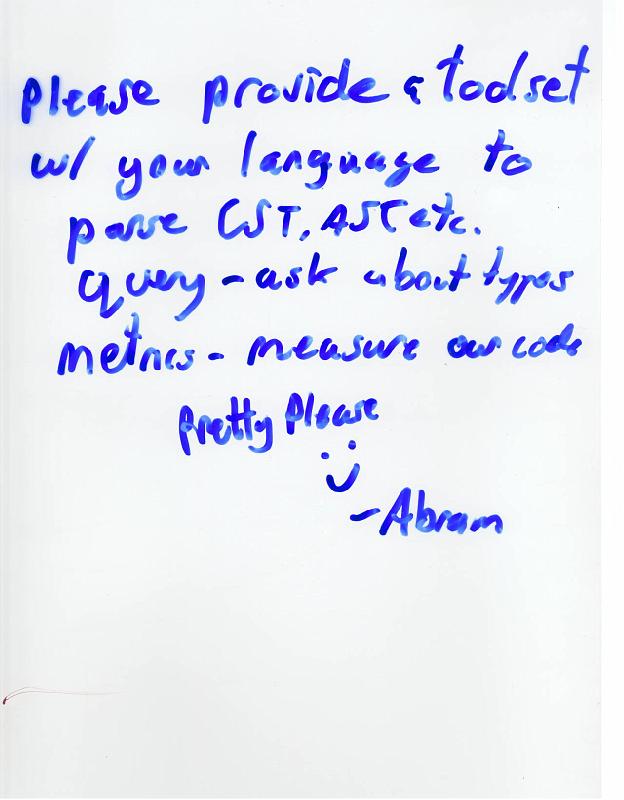 Please provide a toolset
w/ your language to
parse CST, AST etc.
query - ask about types
metrics - measure our code
Pretty Please
:)
- Abram